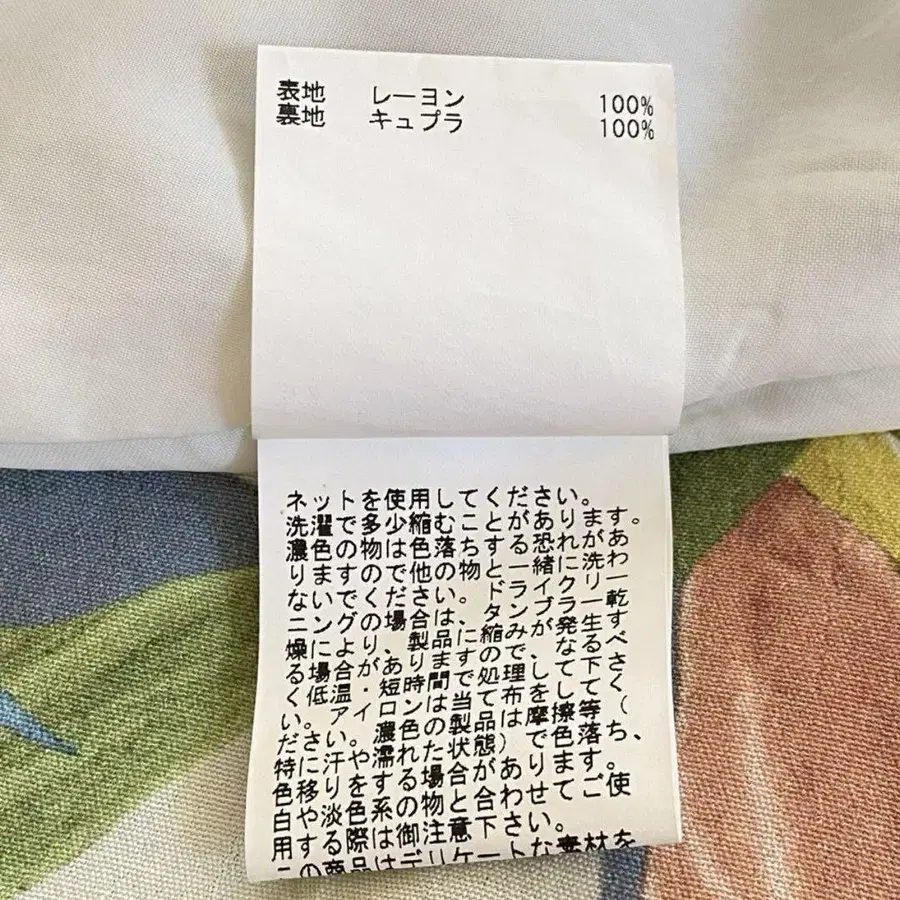 表地 レーヨン 100%
裏地 キュプラ 100%
ネットを使用してください。
洗濯で多少縮むことがあります。
濃色の物は色落ちする恐れがあ
りますので他の物と一緒に洗わ
ないでください。ドライクリー
ニングの場合は、タンブラー乾
燥により、製品に縮みが発生す
る場合がありますので、なるべ
く低温・短時間で処理して下さ
い。アイロンは当て布をしてく
ださい。濃色の製品は摩擦等(
特に汗や濡れた状態)で色落ち、
色移りをする場合があります。
白や淡色系の物と合わせてご使
用する際は御注意下さい。
この商品はデリケートな素材を